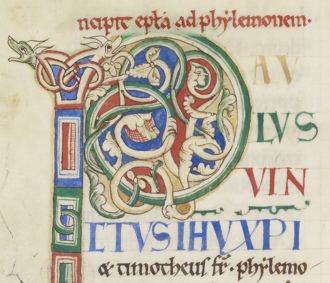 ncipit eptã ad phylemonem.
P AV
LVS
VIN
CTVS IHV XPI
& timotheus fr̄. phylemo